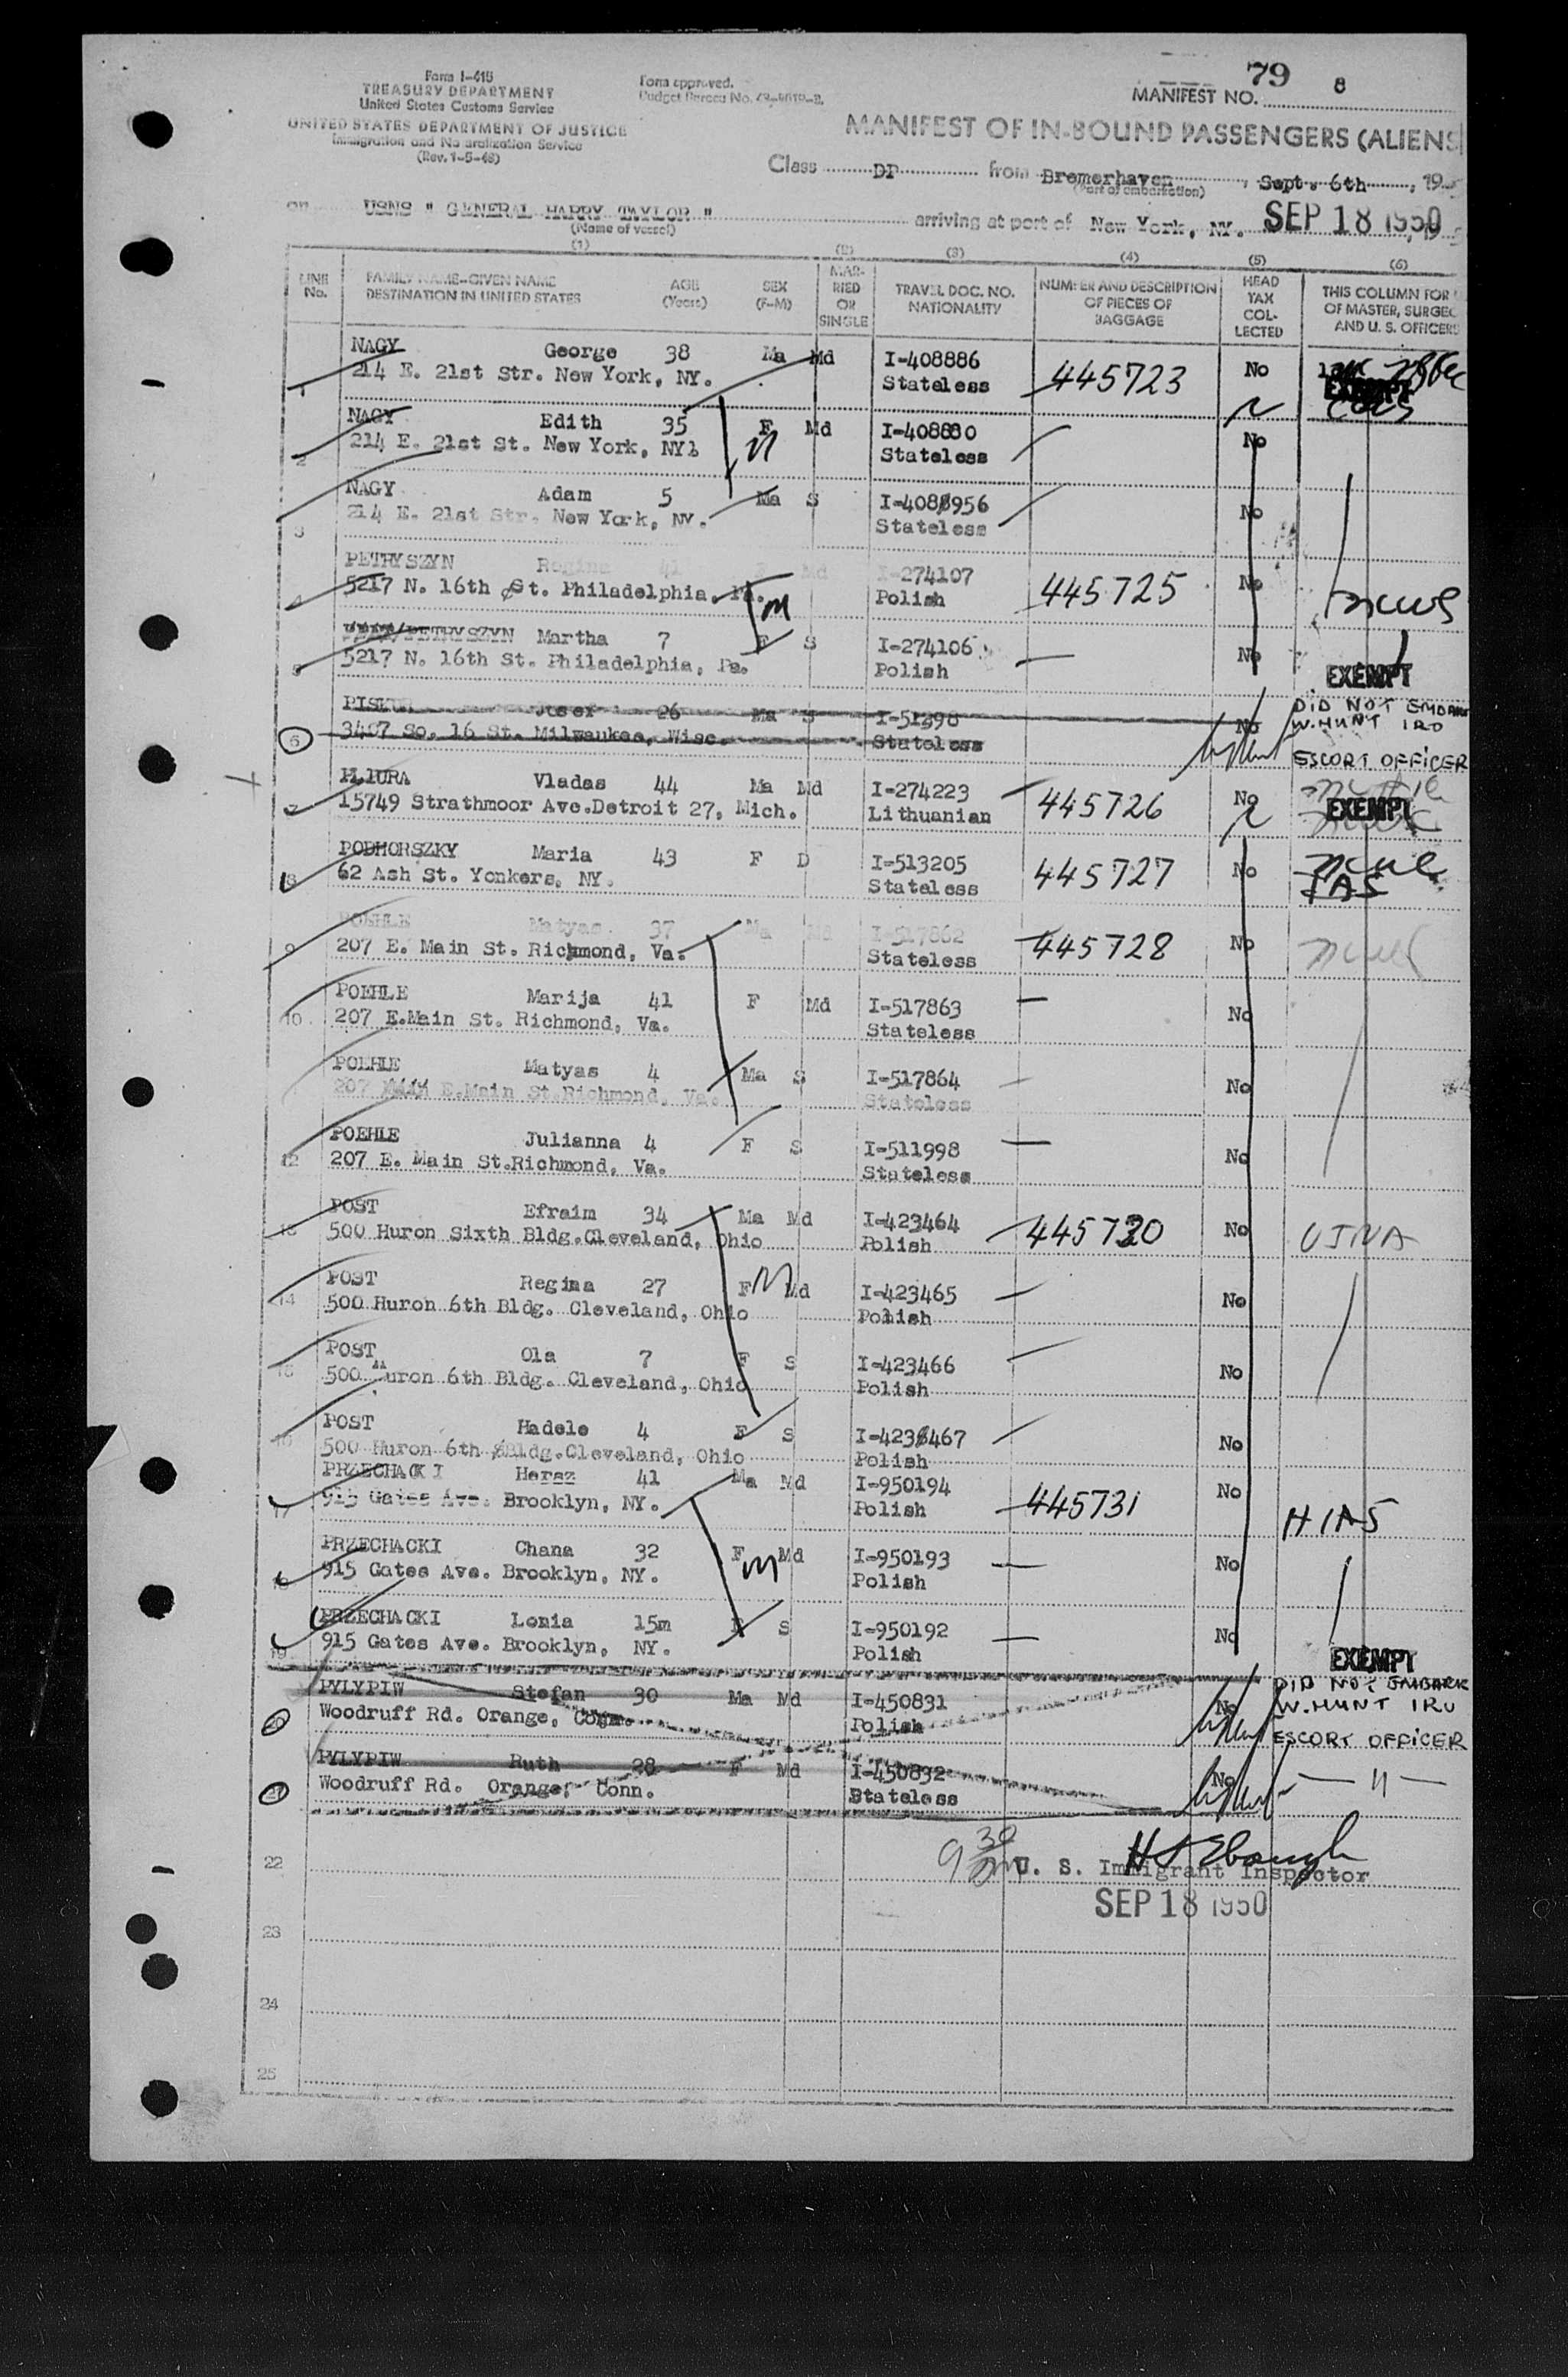 79 8
Form I-415
TREASURY DEPARTMENT
United States Customs Service
UNITED STATES DEPARTMENT OF JUSTICE
Immigration and Naturalization Service
(Rev. 1-5-48)
Form approved.
Budget Bureau No.
MANIFEST NO.
MANIFEST OF IN-BOUND PASSENGERS (ALIENS
Class DP from Bremerhaven, Sept. 6th, 19
(Port of embarkation)
on USNS " GENERAL HARRY TAYLOR " arriving at port of New York, NY. SEP 18 1950
(Name of vessel)
(1) (2) (3) (4) (5) (6)
LINE No. FAMILY NAME-GIVEN NAME DESTINATION IN UNITED STATES AGE (Years) SEX (F-M) MARRIED OR SINGLE TRAVEL DOC. NO. NATIONALITY NUMBER AND DESCRIPTION OF PIECES OF BAGGAGE HEAD TAX COLLECTED THIS COLUMN FOR OF MASTER, SURGEO AND U. S. OFFICERS
1 NAGY George 38 Ma Md I-408886 445723 No EXEMPT
214 E. 21st Str. New York, NY. Stateless
2 NAGY Edith 35 F Md I-408880 No
214 E. 21st St. New York, NY Stateless
3 NAGY Adam 5 Ma S I-408956 No
214 E. 21st Str. New York, NY. Stateless
4 PETRYSZYN Regina 41 F Md I-274107 445725 No
5217 N. 16th St. Philadelphia, Pa. Polish
5 PETRYSZYN Martha 7 F S I-274106 No
5217 N. 16th St. Philadelphia, Pa. Polish
EXEMPT
6 Josef 26 Ma S I-51398 No DID NOT EMBARK
3487 So. 16 St. Milwaukee, Wisc. Stateless W. HUNT IRO
ESCORT OFFICER
7 PLIURA Vladas 44 Ma Md I-274223 445726 No EXEMPT
15749 Strathmoor Ave.Detroit 27, Mich. Lithuanian
8 PODHORSZKY Maria 43 F D I-513205 445727 No
62 Ash St. Yonkers, NY. Stateless
9 POEHLE Matyas 37 Ma Md I-517862 445728 No
207 E. Main St. Richmond, Va. Stateless
10 POEHLE Marija 41 F Md I-517863 No
207 E.Main St. Richmond, Va. Stateless
POEHLE Matyas 4 Ma S I-517864 No
207 E.Main St.Richmond, Va. Stateless
12 POEHLE Julianna 4 F S I-511998 No
207 E. Main St.Richmond, Va. Stateless
13 POST Efraim 34 Ma Md I-423464 445730 No USNA
500 Huron Sixth Bldg.Cleveland, Ohio Polish
14 POST Regina 27 F Md I-423465 No
500 Huron 6th Bldg. Cleveland, Ohio Polish
15 POST Ola 7 F S I-423466 No
500 Huron 6th Bldg. Cleveland, Ohio Polish
16 POST Hadele 4 F S I-423467 No
500 Huron 6th Bldg.Cleveland, Ohio Polish
17 PRZECHACKI Hersz 41 Ma Md I-950194 445731 No HIAS
915 Gates Ave. Brooklyn, NY. Polish
18 PRZECHACKI Chana 32 F Md I-950193 No
915 Gates Ave. Brooklyn, NY. Polish
19 PRZECHACKI Lonia 15m F S I-950192 No
915 Gates Ave. Brooklyn, NY. Polish
EXEMPT
20 PYLYPIW Stefan 30 Ma Md I-450831 No DID NOT EMBARK
Woodruff Rd. Orange, Conn. Polish W. HUNT IRO
ESCORT OFFICER
21 PYLYPIW Ruth 28 F Md I-450832 No — 11 —
Woodruff Rd. Orange, Conn. Stateless
22 9 30 U. S. Immigrant Inspector
SEP 18 1950
23
24
25